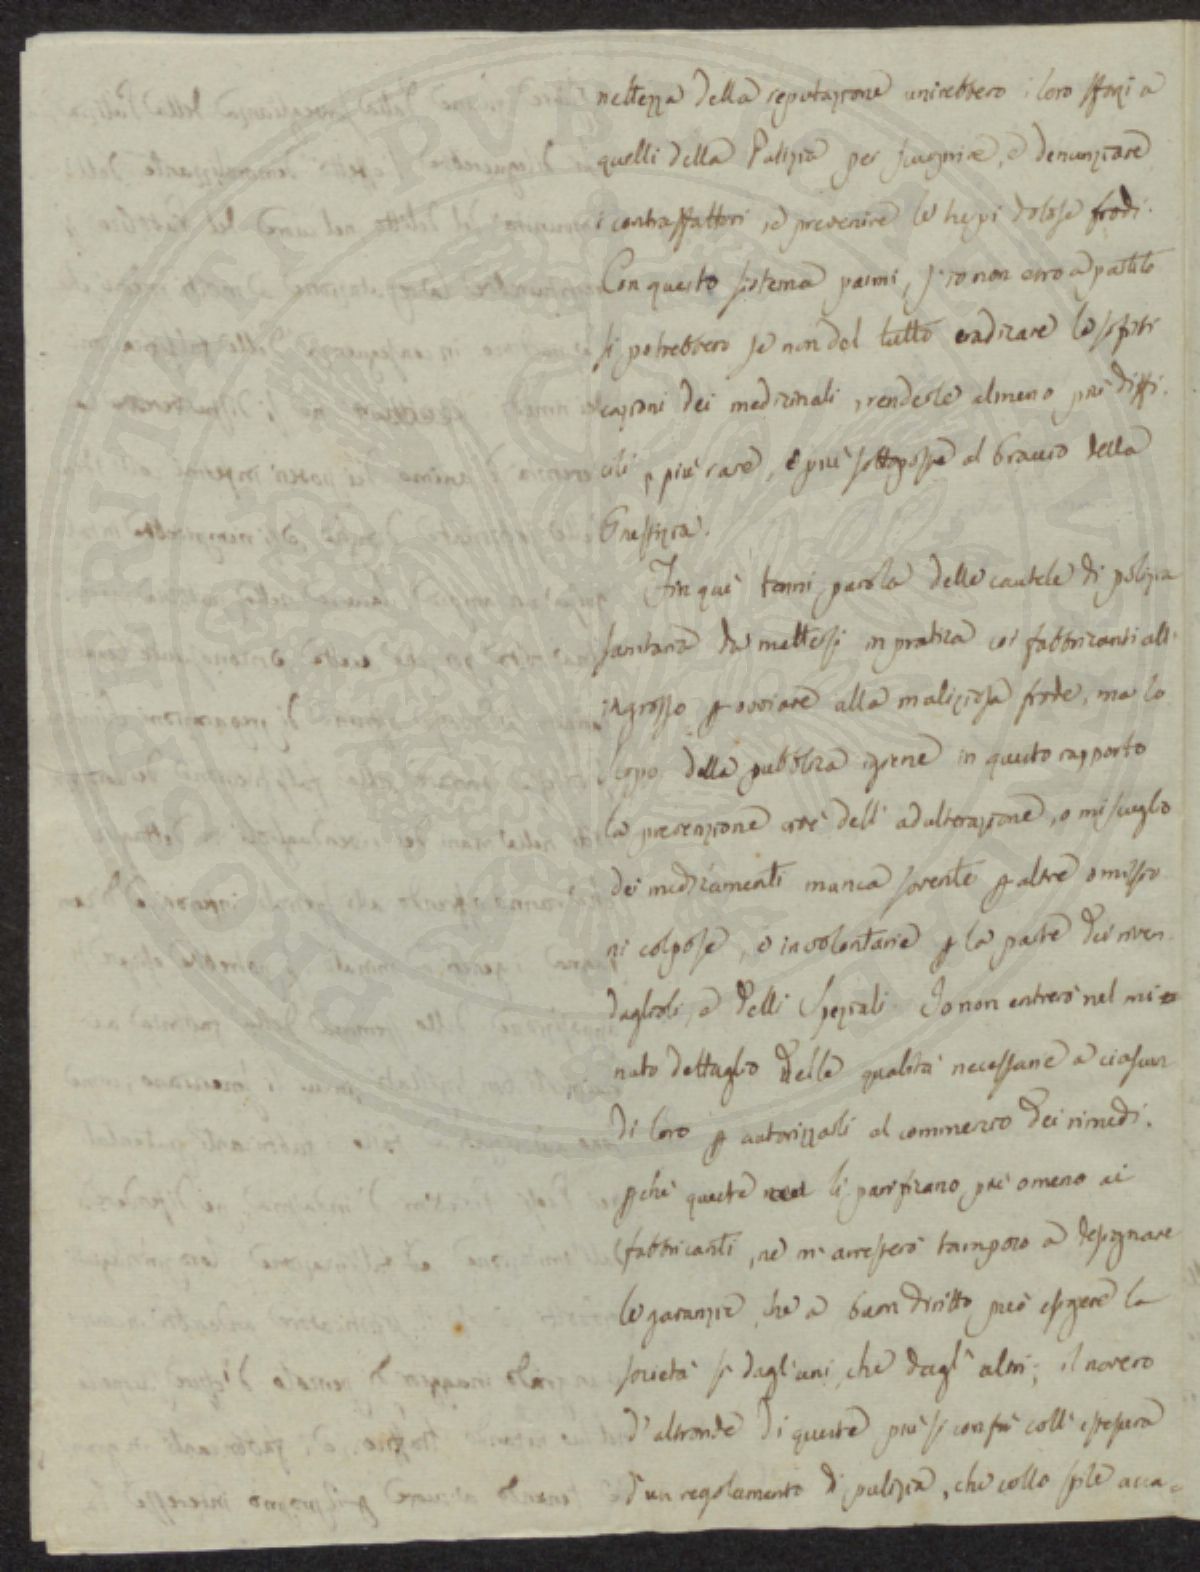 nettezza della reputazione unirebbero i loro sforzi a
quelli della Pulizia per scuoprire, e denunziare
i contraffattori, e prevenire le turpi dolose frodi.
Con questo sistema parmi, s'io non erro a partito
si potrebbero se non del tutto eradicare le sofisti
cazioni dei medicinali, renderle almeno più diffi-
cili, più rare, e più sottoposte al braccio della
Giustizia.
Fin quì tenni parola delle cautele di polizia
sanitaria da mettersi in pratica coi fabbricanti all'
ingrosso p ovviare alla maliziosa frode, ma lo
scopo della pubblica igiene in questo rapporto
la prevenzione cioè dell'adulterazione, o miscuglio
dei medicamenti manca sovente p altre omissio
ni colpose, e involontarie p la parte dei riven-
daglioli, e delli Speziali. Io non entrerò nel mi
nuto dettaglio delle qualità necessarie a ciascun
di loro p autorizzarli al commercio dei rimedi,
pchè queste li parificano più o meno ai
fabbricanti, nè m'arresterò tampoco a designare
le garanzie che a buon diritto può esigere la
società sì dagl'uni, che dagl'altri; il novero
d'altronde di queste più si confà coll'estesura
d'un regolamento di pulizia, che collo stile acca=